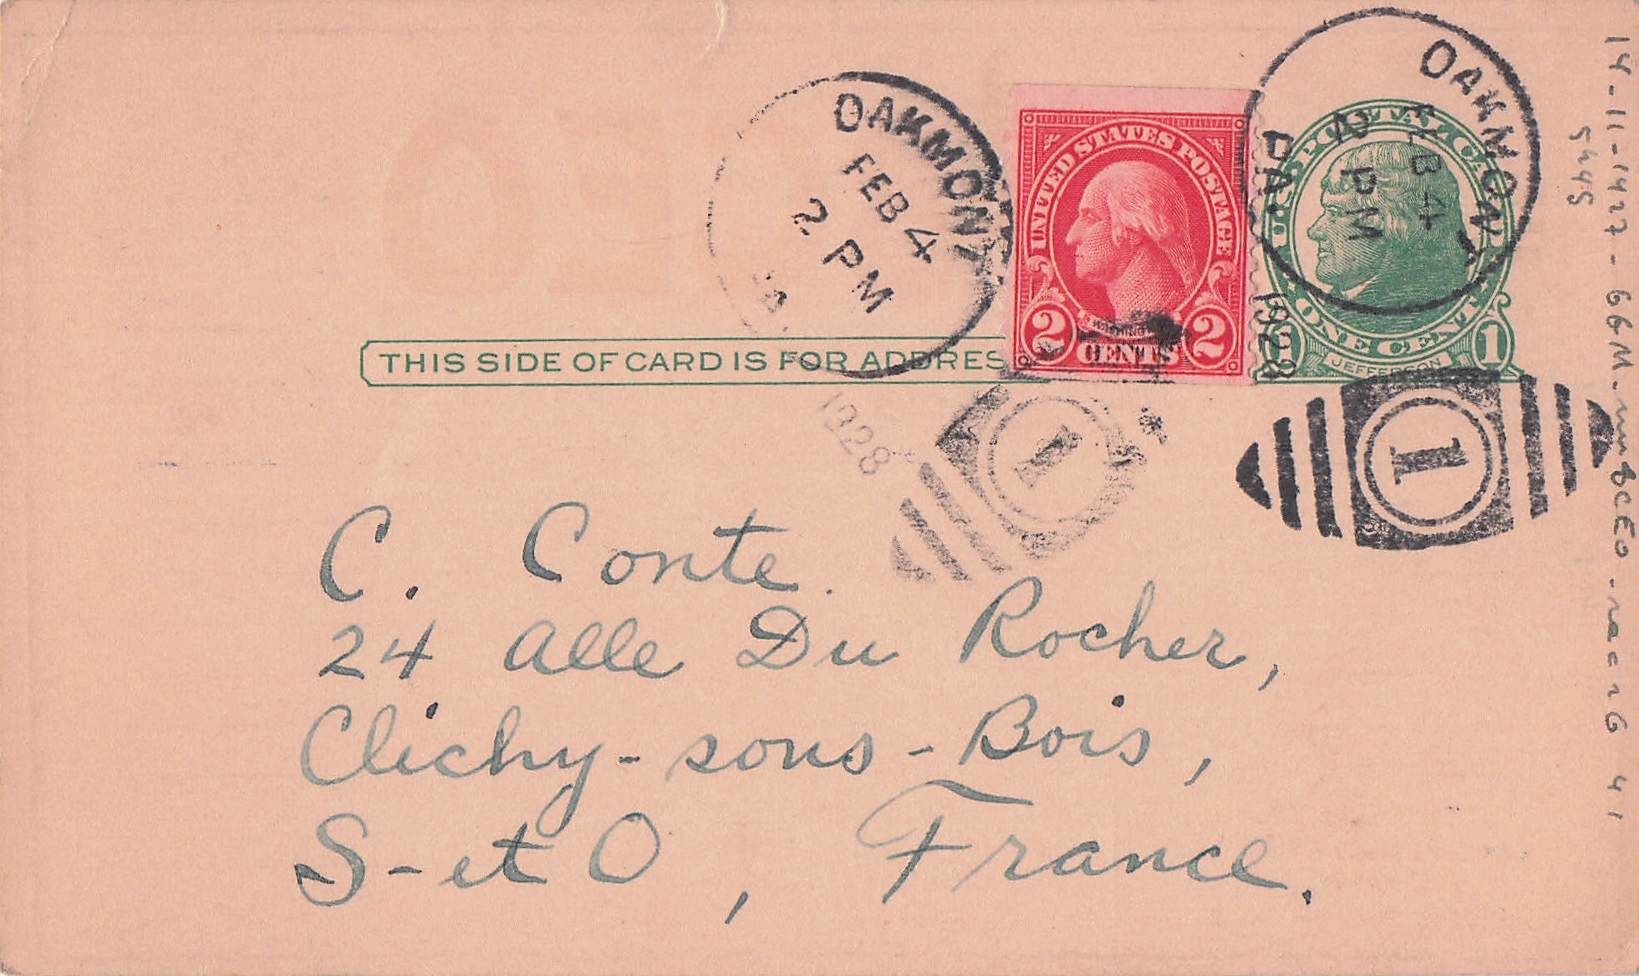 OAKMONT
FEB 4
2 PM
PA.
1928
UNITED STATES POSTAGE
WASHINGTON
2 CENTS 2
OAKMONT
FEB 4
2 PM
PA.
1928
U.S. POSTAL CARD
1 ONE CENT 1
JEFFERSON
THIS SIDE OF CARD IS FOR ADDRES
1
1
C. Conte.
24 Alle Du Rocher,
Clichy-sous-Bois,
S-et O, France.
14-11-1927-
5445